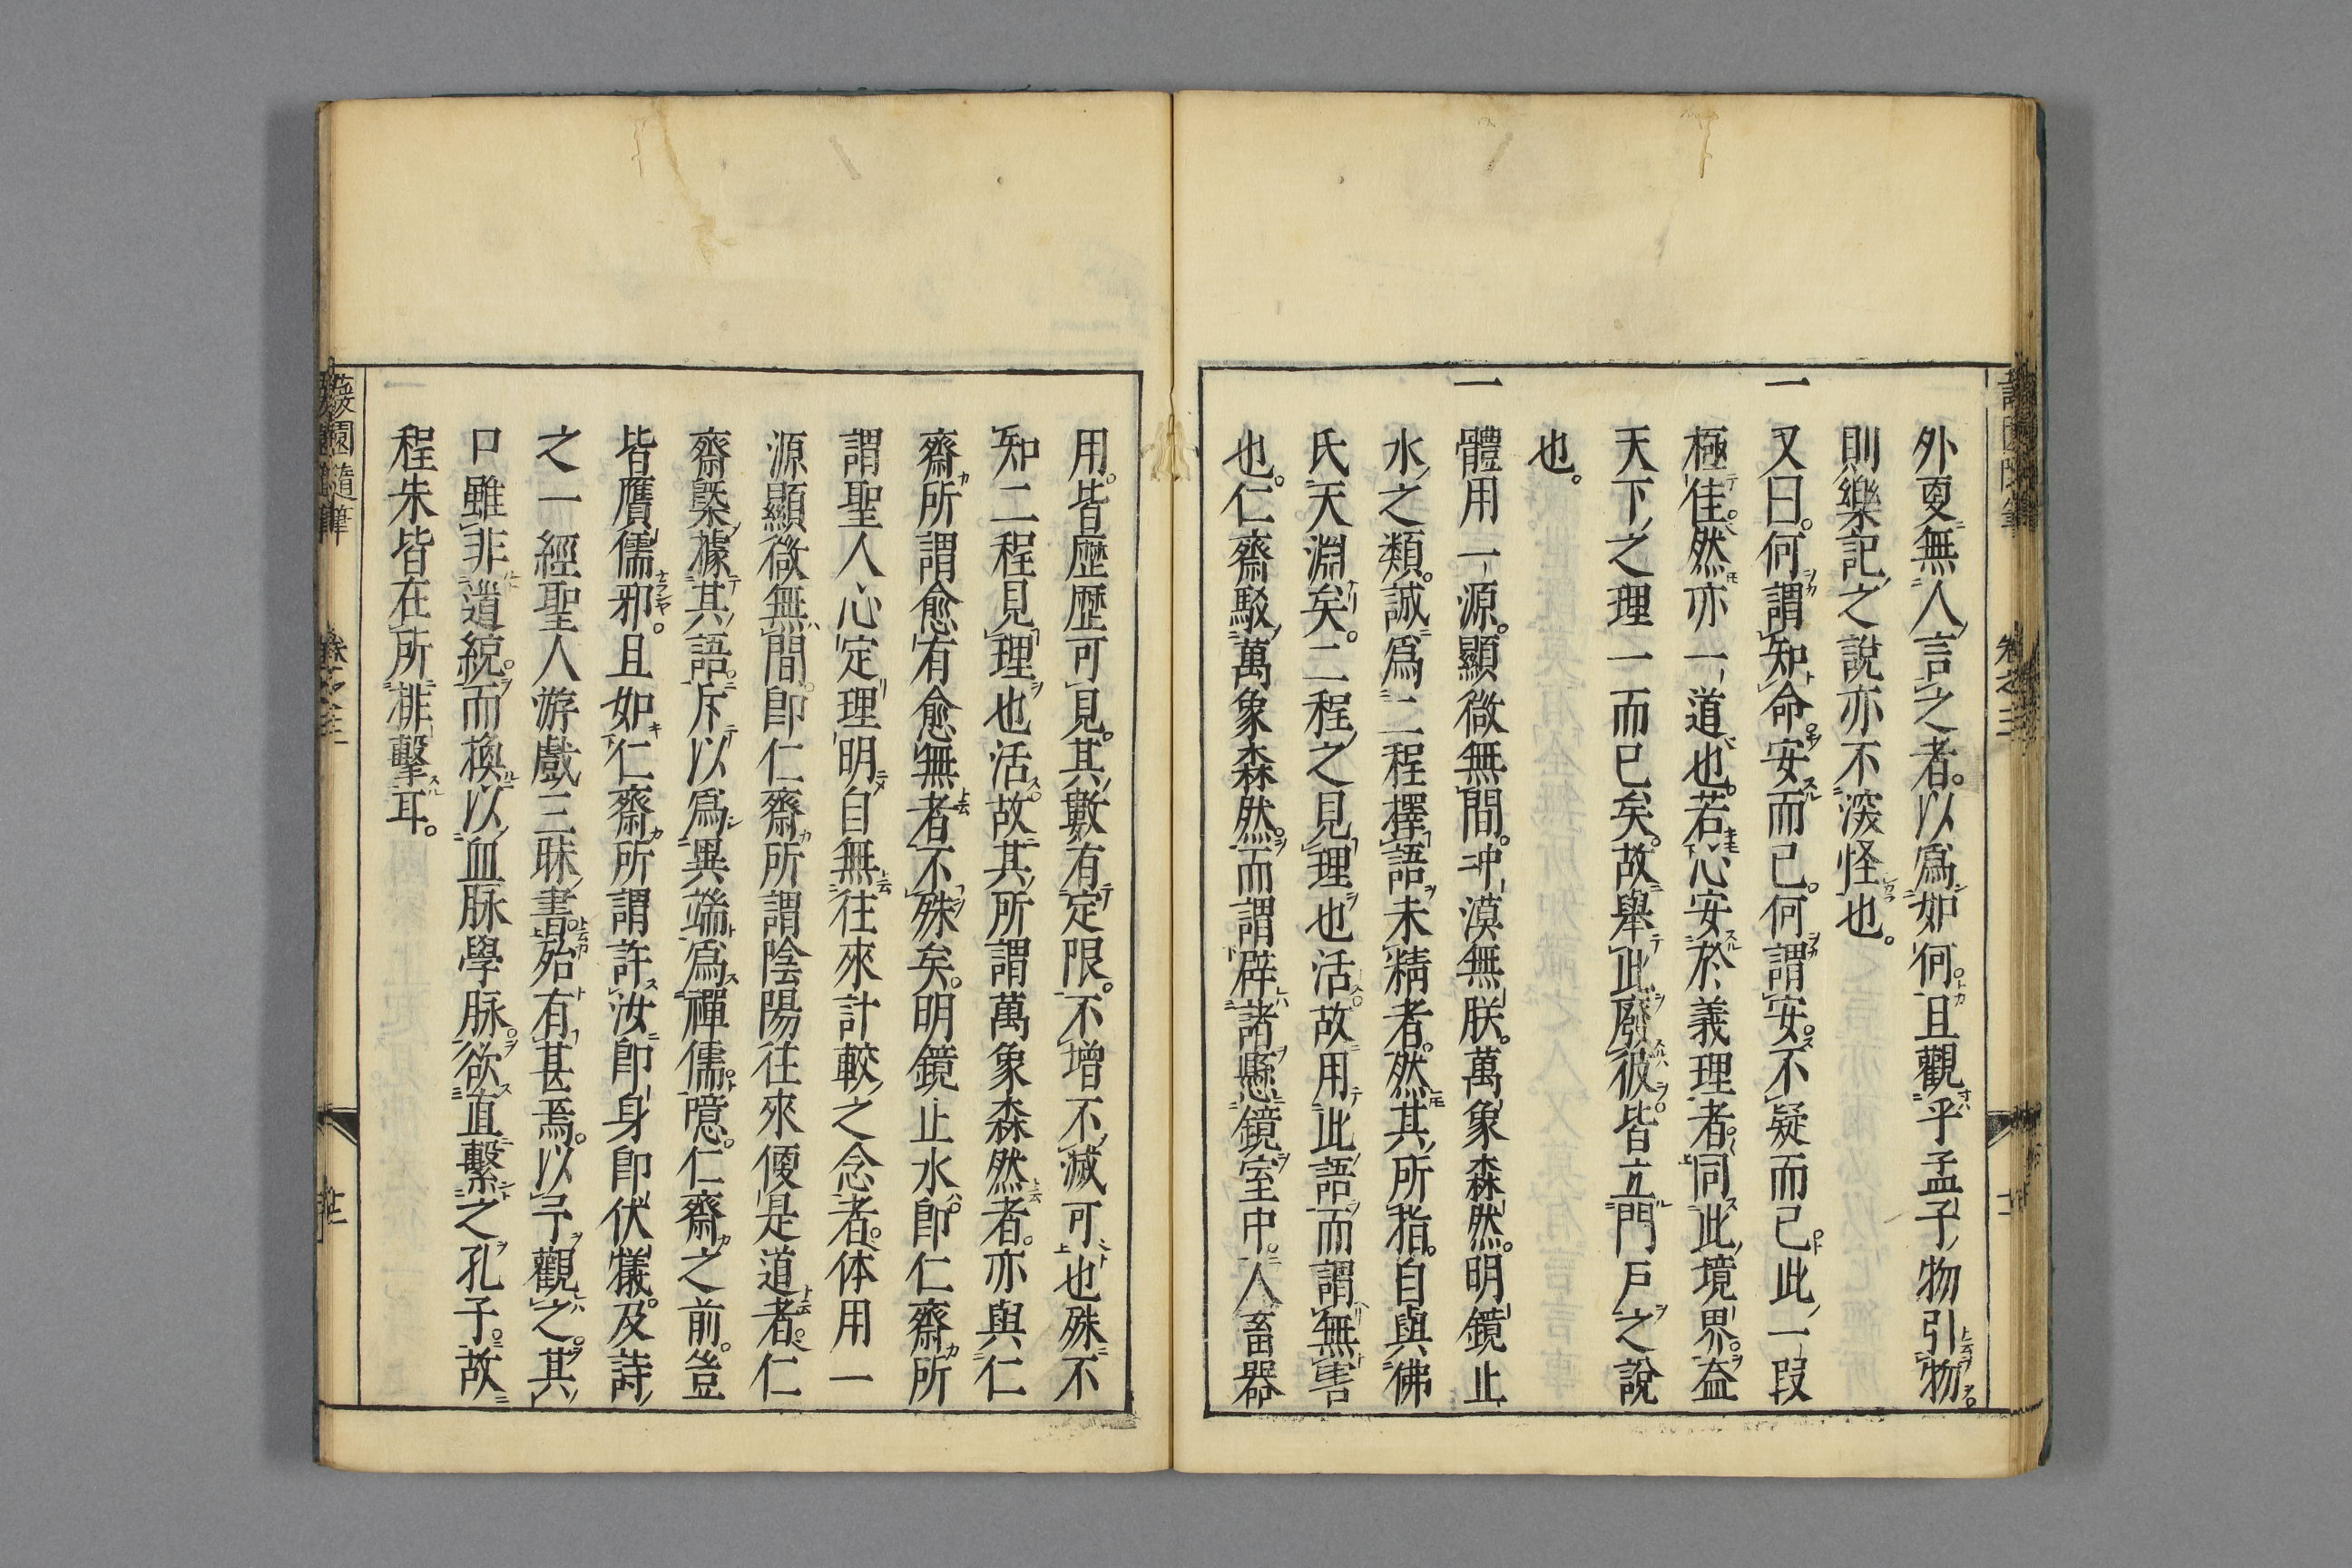 外更無人言之者。以爲如何。且觀乎孟子物引物。
則樂記之說亦不深怪也。
一又曰。何謂知命安而已。何謂安。不疑而已。此一段
極佳。然亦一道也。若心安於義理者。同此境界。益
天下之理一而已矣。故舉此廢彼。皆立門戶之說
也。
一體用一源。顯微無間。冲漠無朕。萬象森然。明鏡止
水之類。誠爲二程擇語未精者。然其所指。自與佛
氏天淵矣。二程之見理也活。故用此語而謂無害
也。仁齋駁萬象森然。而謂辟諸懸鏡室中。人畜器
用。皆歷歷可見。其數有定限。不增不減可也。殊不
知二程見理也活。故其所謂萬象森然者。亦與仁
齋所謂愈有愈無者不殊矣。明鏡止水。卽仁齋所
謂聖人心定理明。自無往來計較之念者。体用一
源顯微無間。卽仁齋所謂陰陽往來便是道者。仁
齋槩據其語。斥以爲異端爲禪儒。噫。仁齋之前。豈
皆贋儒邪。且如仁齋所謂許汝卽身卽伏犧。及詩
之一經聖人游戲三昧書。殆有甚焉。以予觀之。其
口雖非道統。而換以血脉學脉。欲直繫之孔子。故
程朱皆在所排擊耳。
蘐園隨筆
卷之三